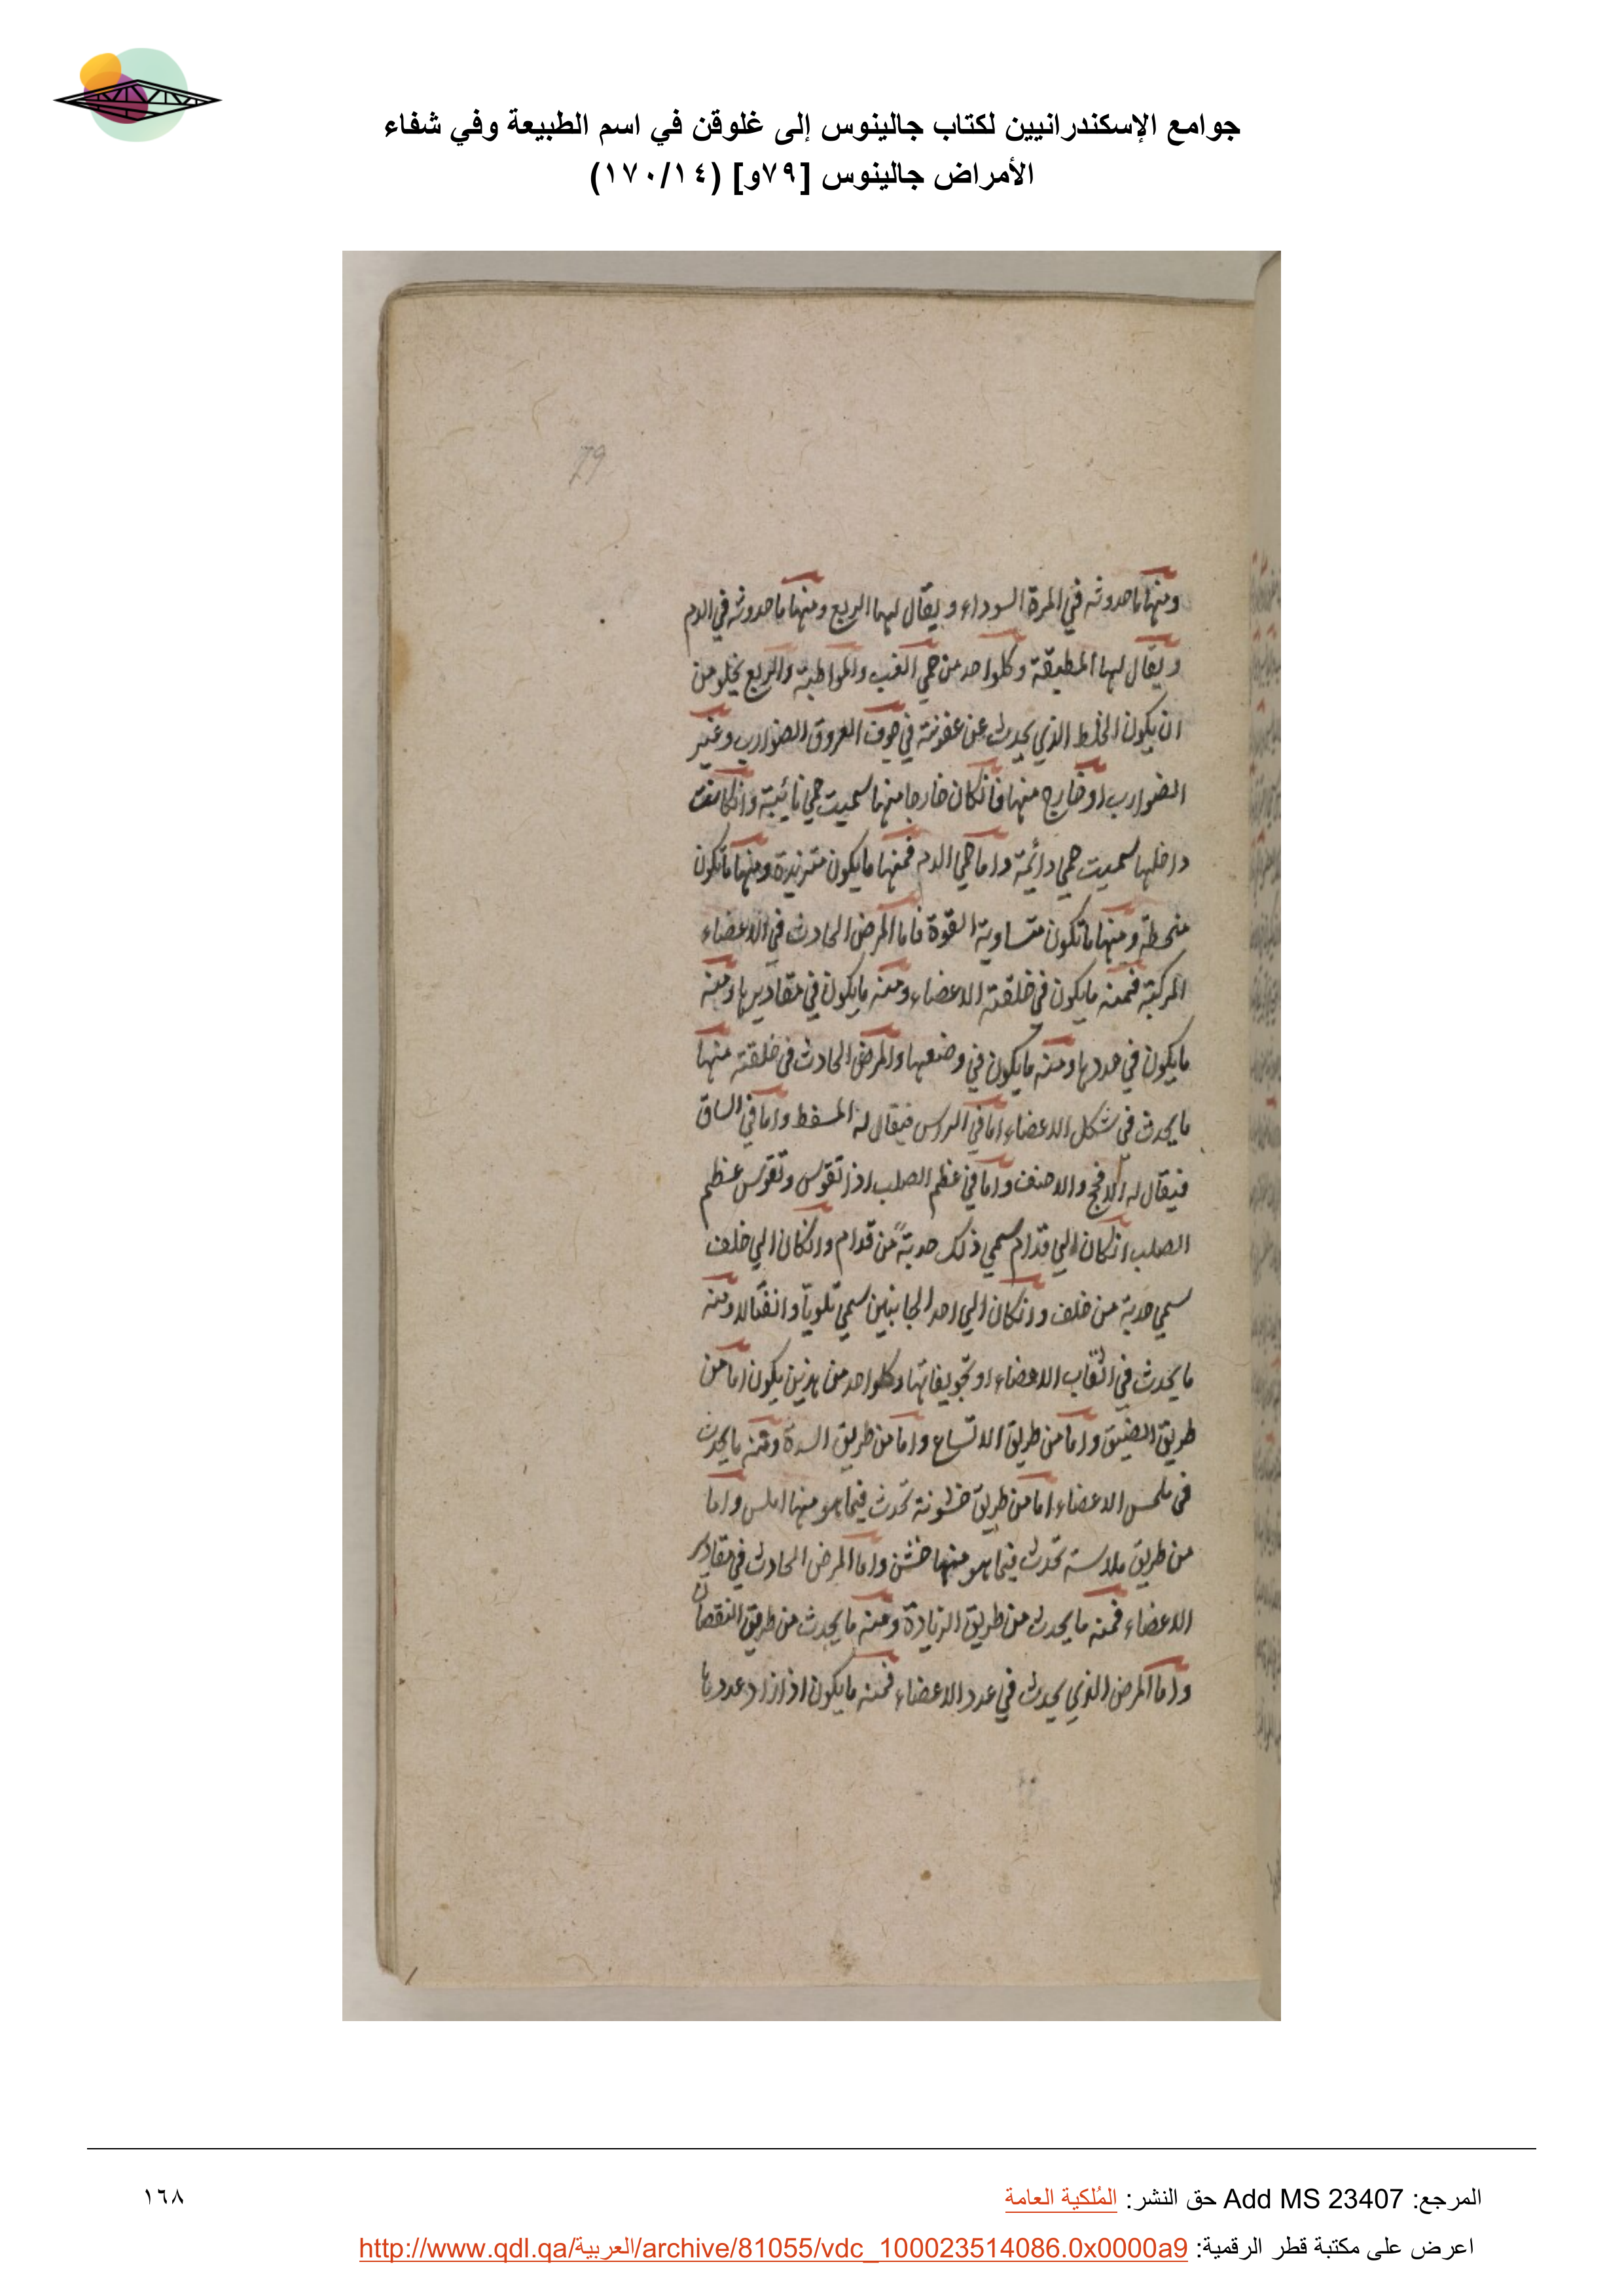 جوامع الإسكندرانيين لكتاب جالينوس إلى غلوقن في اسم الطبيعة وفي شفاء
الأمراض جالينوس [٧٩و] (١٧٠/١٤)
79
ومنها ما حدوثه في المرة السوداء ويقال لها الربع ومنها ما حدوثه في الدم
ويقال لها المطبقة وكلواحد من حمي الغب والمواظبة والربع يخلو من
ان يكون الخلط الذي يحدث عن عفونة في جوف العروق الضوارب وغير
الضوارب او خارج منها فانكان خارجا منها سميت حمي نائبة وانكانت
داخلها سميت حمي دائمة واما حمي الدم فمنها ما يكون متزيدة ومنها ما تكون
منحطة ومنها ما تكون متساوية القوة فاما المرض الحادث في الاعضاء
المركبة فمنه ما يكون في خلقة الاعضاء ومنه ما يكون في مقاديرها ومنه
ما يكون في عددها ومنه ما يكون في وضعها والمرض الحادث في خلقته منها
ما يحدث في شكل الاعضاء اما في الروس فيقال له المسفط واما في الساق
فيقال له الافحج والاحنف واما في عظم الصلب اذا تقوس وتقوس عظم
الصلب انكان الي قدام سمي ذلك حدبةً من قدام وانكان الي خلف
سمي حدبة من خلف وانكان الي احد الجانبين سمي تلوياً وانفتالا ومنه
ما يحدث في اثقاب الاعضاء او تجويفاتها وكلواحد من هذين يكون اما من
طريق الضيق واما من طريق الاتساع واما من طريق السدة ومنه ما يحدث
في ملمس الاعضاء اما من طريق خشونة تحدث فيما هو منها املس واما
من طريق ملاسة تحدث فيما هو منها خشن واما المرض الحادث في مقادير
الاعضاء فمنه ما يحدث من طريق الزيادة ومنه ما يحدث من طريق النقصان
واما المرض الذي يحدث في عدد الاعضاء فمنه ما يكون اذا زاد عددها
المرجع: Add MS 23407 حق النشر: المُلكية العامة
١٦٨
اعرض على مكتبة قطر الرقمية: http://www.qdl.qa/العربية/archive/81055/vdc_100023514086.0x0000a9